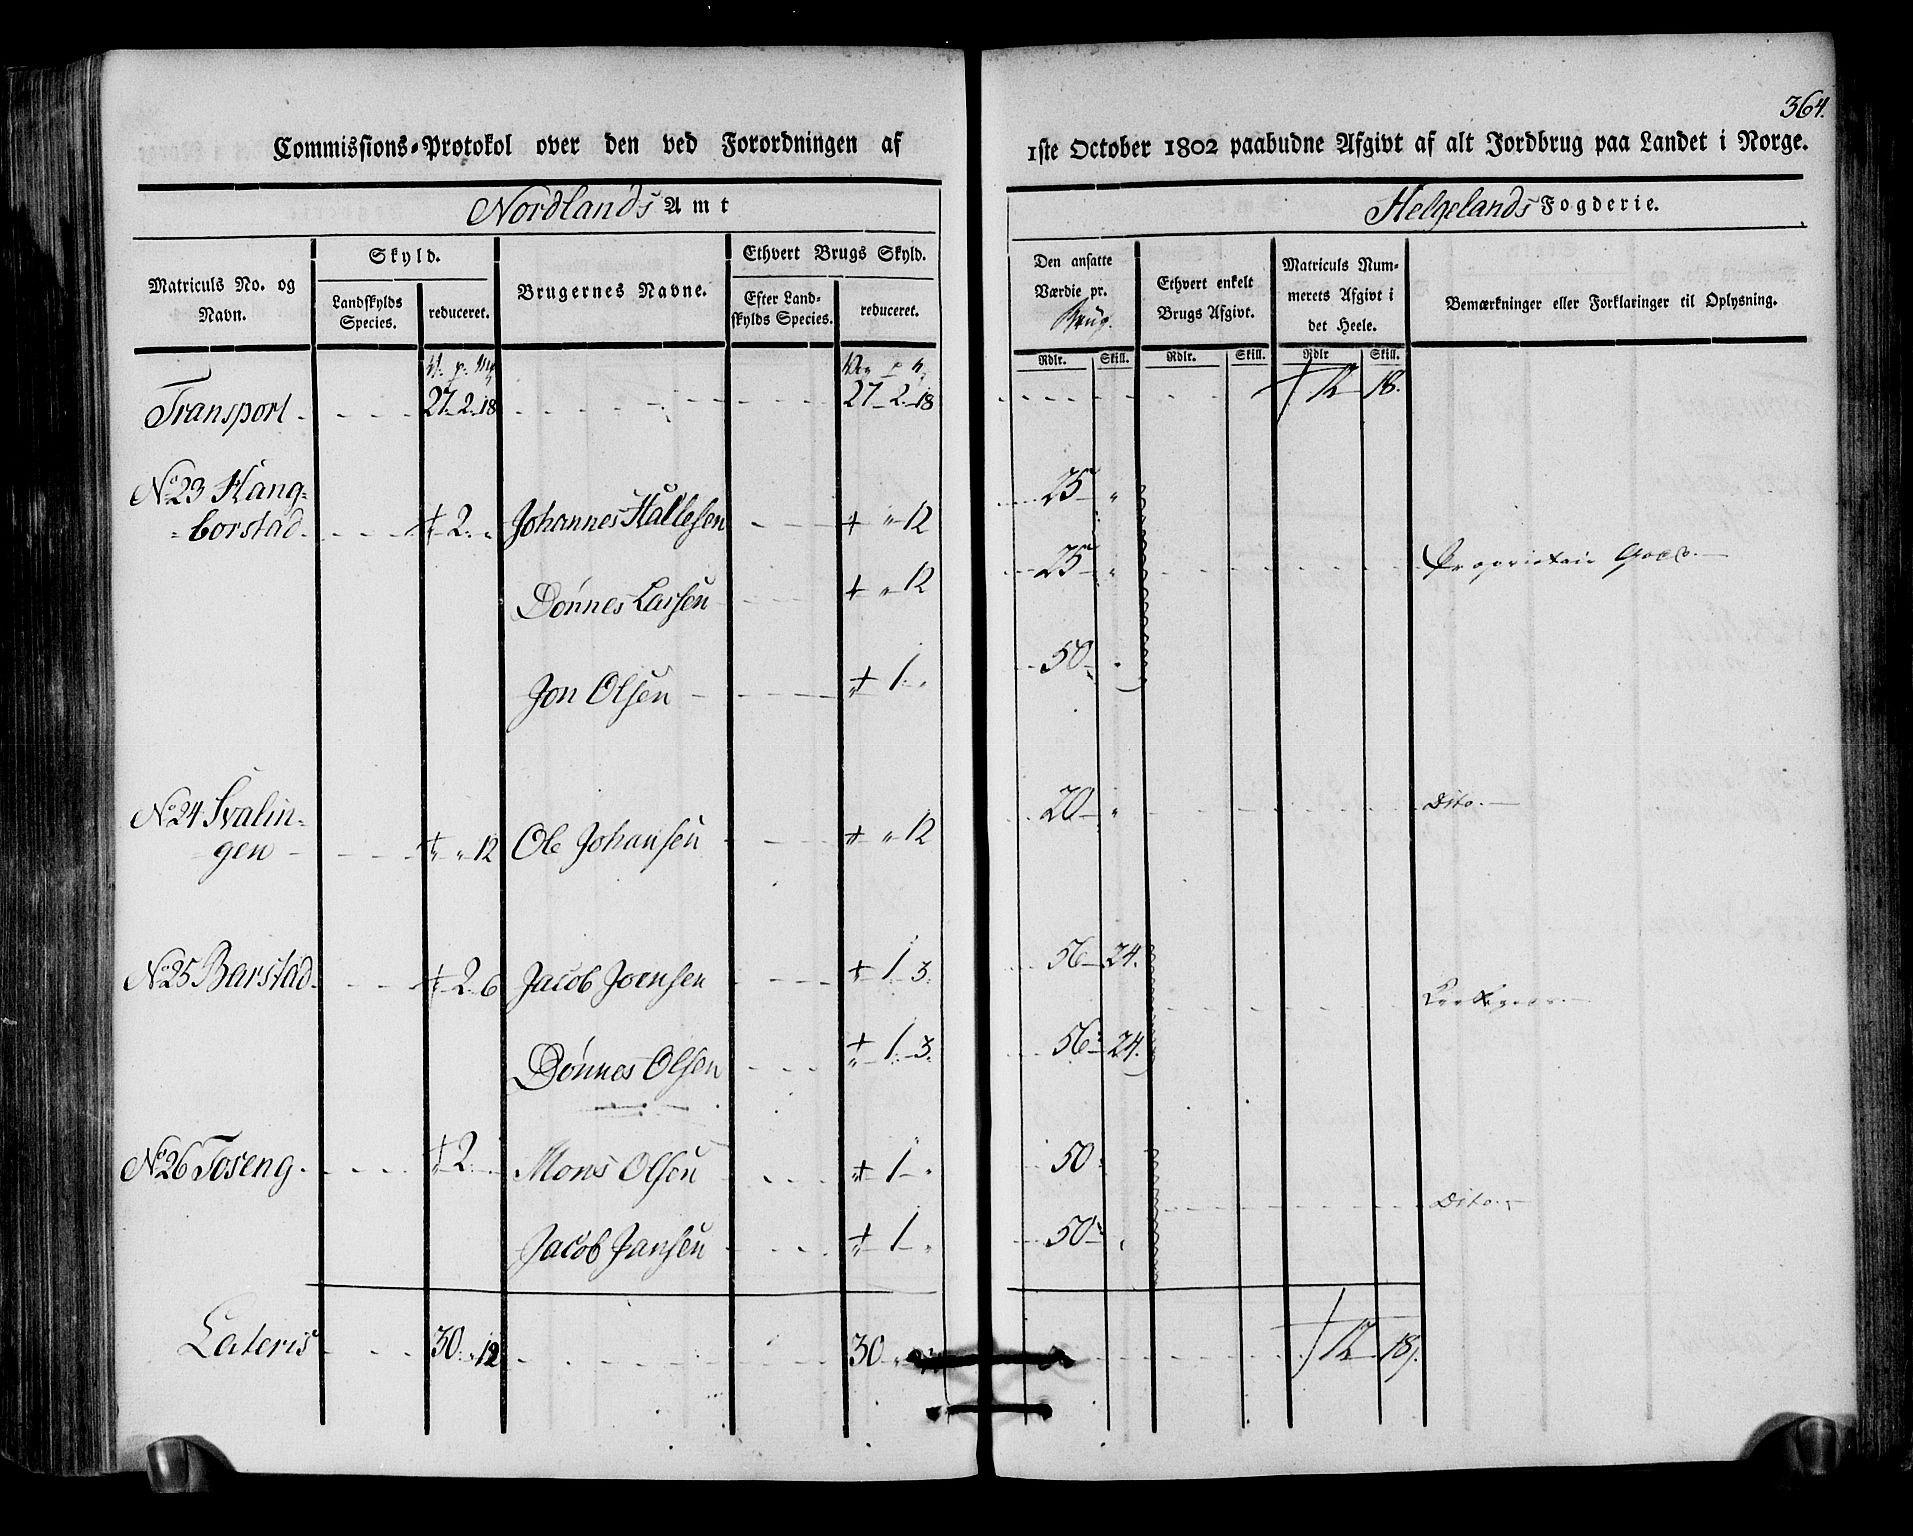 364.
Commissions-Protokol over den ved Forordningen af 1ste October 1802 paabudne Afgivt af alt Jordbrug paa Landet i Norge.
Nordlands Amt
Helgelands Fogderie.
Matriculs No. og Navn.
Skyld.
Landskylds Species.
reduceret.
Brugernes Navne.
Ethvert Brugs Skyld.
Efter Landskylds Species.
reduceret.
Den ansatte Værdie pr. Brug.
Rdlr. Skill.
Ethvert enkelt Brugs Afgivt.
Rdlr. Skill.
Matriculs Nummerets Afgivt i det Heele.
Rdlr Skill.
Bemærkninger eller Forklaringer til Oplysning.
Transport 27 2 18 27 2 18 12 18.
No 23 Hang=
=borstad 2 " Johannes Hallesen " 12 25 "
Dønnes Larsen " 12 25 " Proprietair Gods.
Jon Olsen 1 " 50 "
No 24 Svalin=
gen " 12 Ole Johansen " 12 20 " Dito.
No 25 Barstad 2 6 Jacob Joensen 1 3. 56 24.
Dønnes Olsen 1 3. 56 24.
No 26 Toseng 2 Mons Olsen 1 " 50
Dito.
Jacob Jansen 1 " 50 "
Lateris 30 " 12 30 " 12 18.